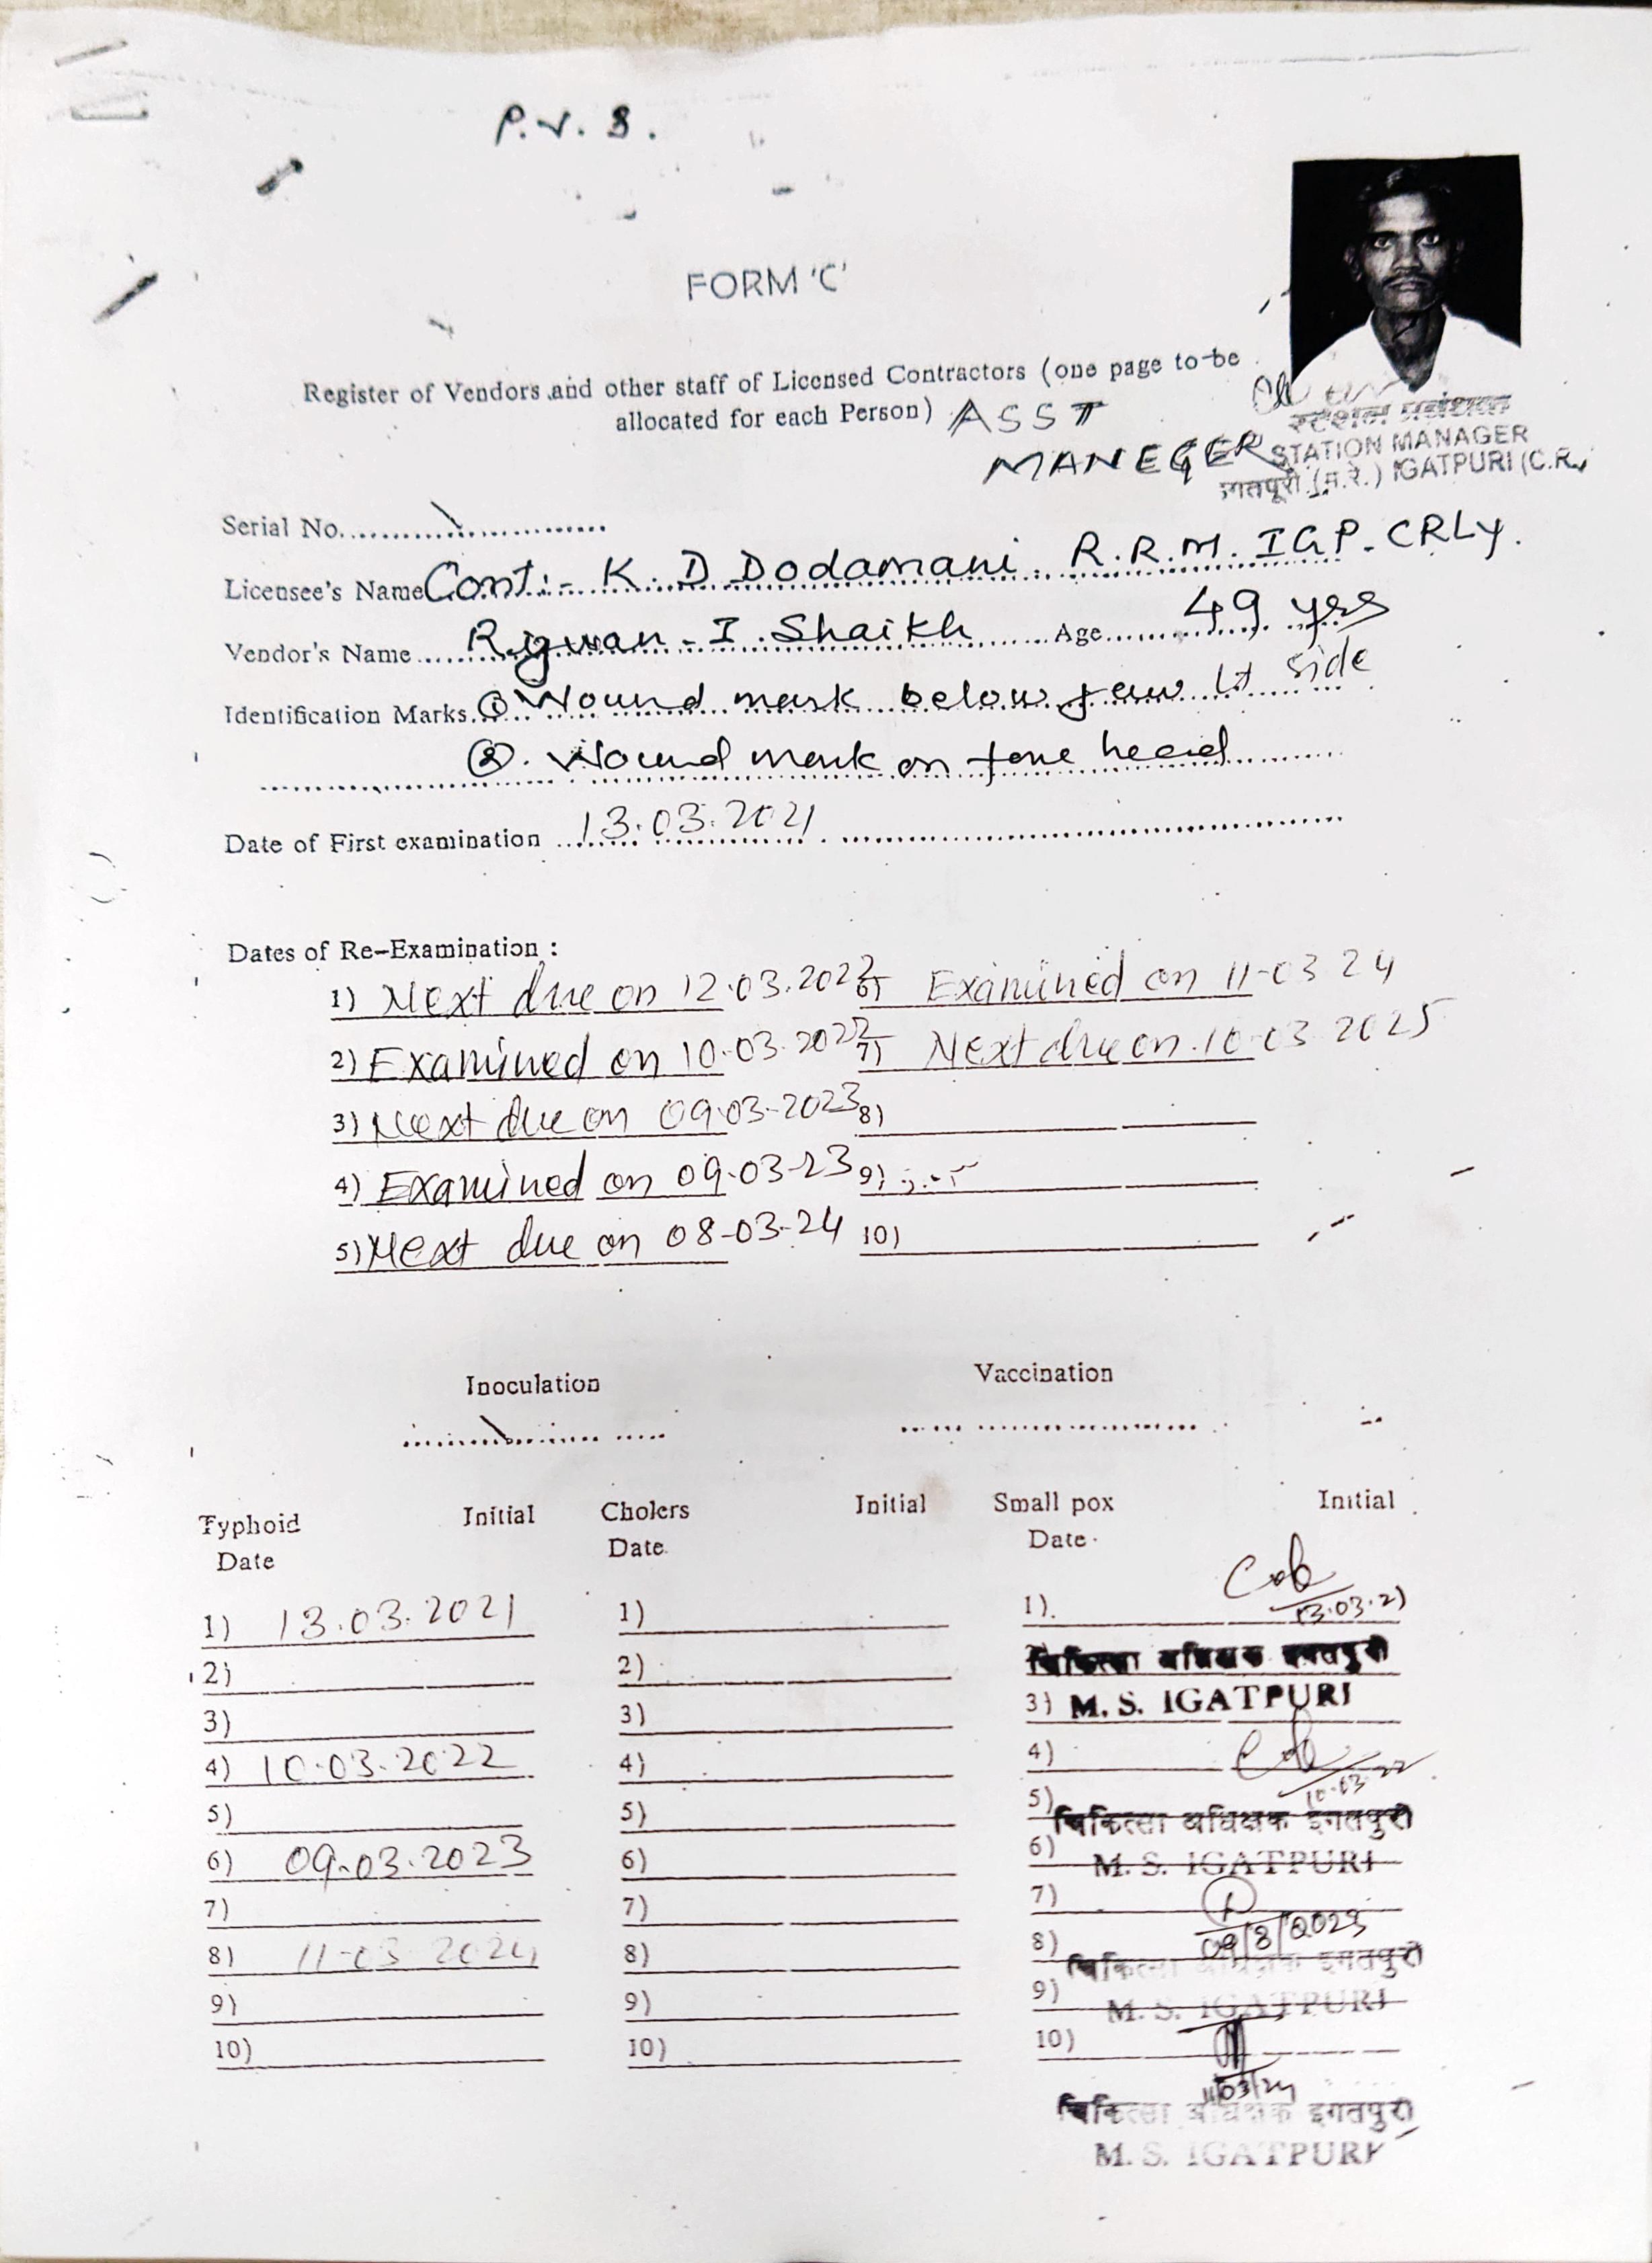 P.V.B.
FORM 'C'
Register of Vendors and other staff of Licensed Contractors (one page to be
allocated for each Person) ASST
MANEGER
स्टेशन प्रबंधक
STATION MANAGER
इगतपूरी (म.रे.) IGATPURI (C.R.)
Serial No.
Licensee's Name Cont:- K. D. Dodamani. R.R.M. IGP. CRLY.
Vendor's Name Rizwan - I. Shaikh Age 49 yrs
Identification Marks ① Wound mark below jaw Lt side
②. Wound mark on fore head
Date of First examination 13.03.2021
Dates of Re-Examination :
1) Next due on 12.03.2022 6) Examined on 11-03 24
2) Examined on 10.03.2022 7) Next due on 10-03 2025
3) Next due on 09.03-2023 8)
4) Examined on 09.03-23 9)
5) Next due on 08-03-24 10)
Inoculation Vaccination
Typhoid Initial Cholers Initial Small pox Initial
Date Date. Date
1) 13.03.2021 1) 1). 13.03.21
2) 2) चिकित्सा अधिक्षक इगतपुरी
3) 3) 3) M. S. IGATPURI
4) 10.03.2022 4) 4) 10.03.22
5) 5) 5) चिकित्सा अधिक्षक इगतपुरी
6) 09.03.2023 6) 6) M. S. IGATPURI
7) 7) 7)
8) 11-03 2024 8) 8) 09/3/2023
चिकित्सा अधिक्षक इगतपुरी
9) 9) 9) M. S. IGATPURI
10) 10) 10)
11/03/24
चिकित्सा अधिक्षक इगतपुरी
M. S. IGATPURI